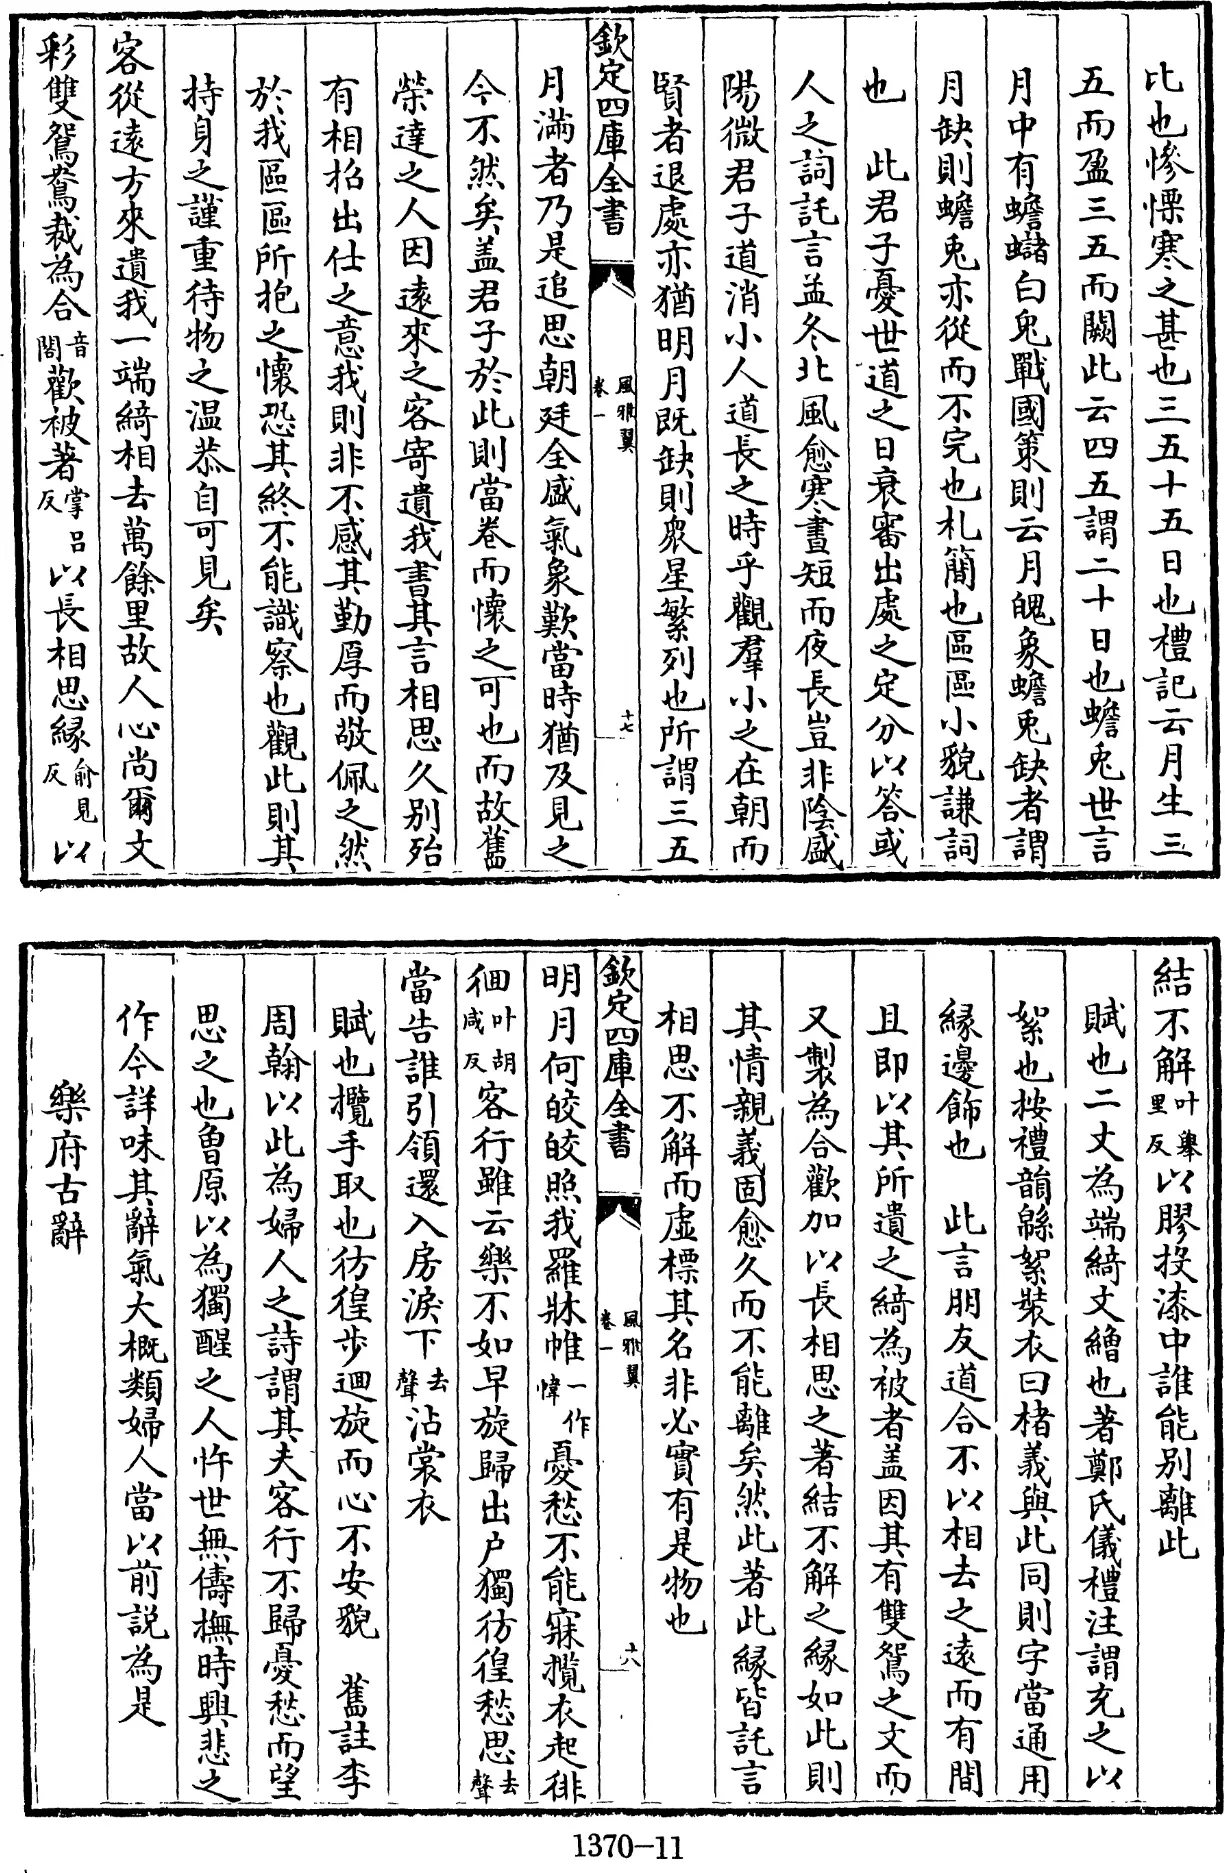 比也慘慄寒之甚也三五十五日也禮記云月生三
五而盈三五而闕此云四五謂二十日也蟾兎世言
月中有蟾蠩白兎戰國策則云月魄象蟾兎缺者謂
月缺則蟾兎亦從而不完也札簡也區區小貌謙詞
也　此君子憂世道之日衰審出處之定分以答或
人之詞託言孟冬北風愈寒晝短而夜長豈非陰盛
陽微君子道消小人道長之時乎觀羣小之在朝而
賢者退處亦猶明月既缺則衆星繁列也所謂三五
欽定四庫全書　風雅翼卷一　十七
月滿者乃是追思朝廷全盛氣象歎當時猶及見之
今不然矣盖君子於此則當卷而懷之可也而故舊
榮達之人因遠來之客寄遺我書其言相思久別殆
有相招出仕之意我則非不感其勤厚而敬佩之然
於我區區所抱之懷恐其終不能識察也觀此則其
持身之謹重待物之温恭自可見矣
客從遠方來遺我一端綺相去萬餘里故人心尚爾文
彩雙鴛鴦裁為合音閤歡被著掌呂反以長相思緣俞見反以
結不解叶舉里反以膠投漆中誰能別離此
賦也二丈為端綺文繒也著鄭氏儀禮注謂充之以
絮也按禮韻緜絮裝衣曰楮義與此同則字當通用
緣邊飾也　此言朋友道合不以相去之遠而有間
且即以其所遺之綺為被者盖因其有雙鴛之文而
又製為合歡加以長相思之著結不解之緣如此則
其情親義固愈久而不能離矣然此著此緣皆託言
相思不解而虛標其名非必實有是物也
欽定四庫全書　風雅翼卷一　十八
明月何皎皎照我羅牀帷一作幃憂愁不能寐攬衣起徘
徊叶胡咸反客行雖云樂不如早旋歸出户獨彷徨愁思去聲
當告誰引領還入房淚下去聲沾裳衣
賦也攬手取也彷徨步迴旋而心不安貌　舊註李
周翰以此為婦人之詩謂其夫客行不歸憂愁而望
思之也曾原以為獨醒之人忤世無儔撫時興悲之
作今詳味其辭氣大概類婦人當以前説為是
樂府古辭
1370-11